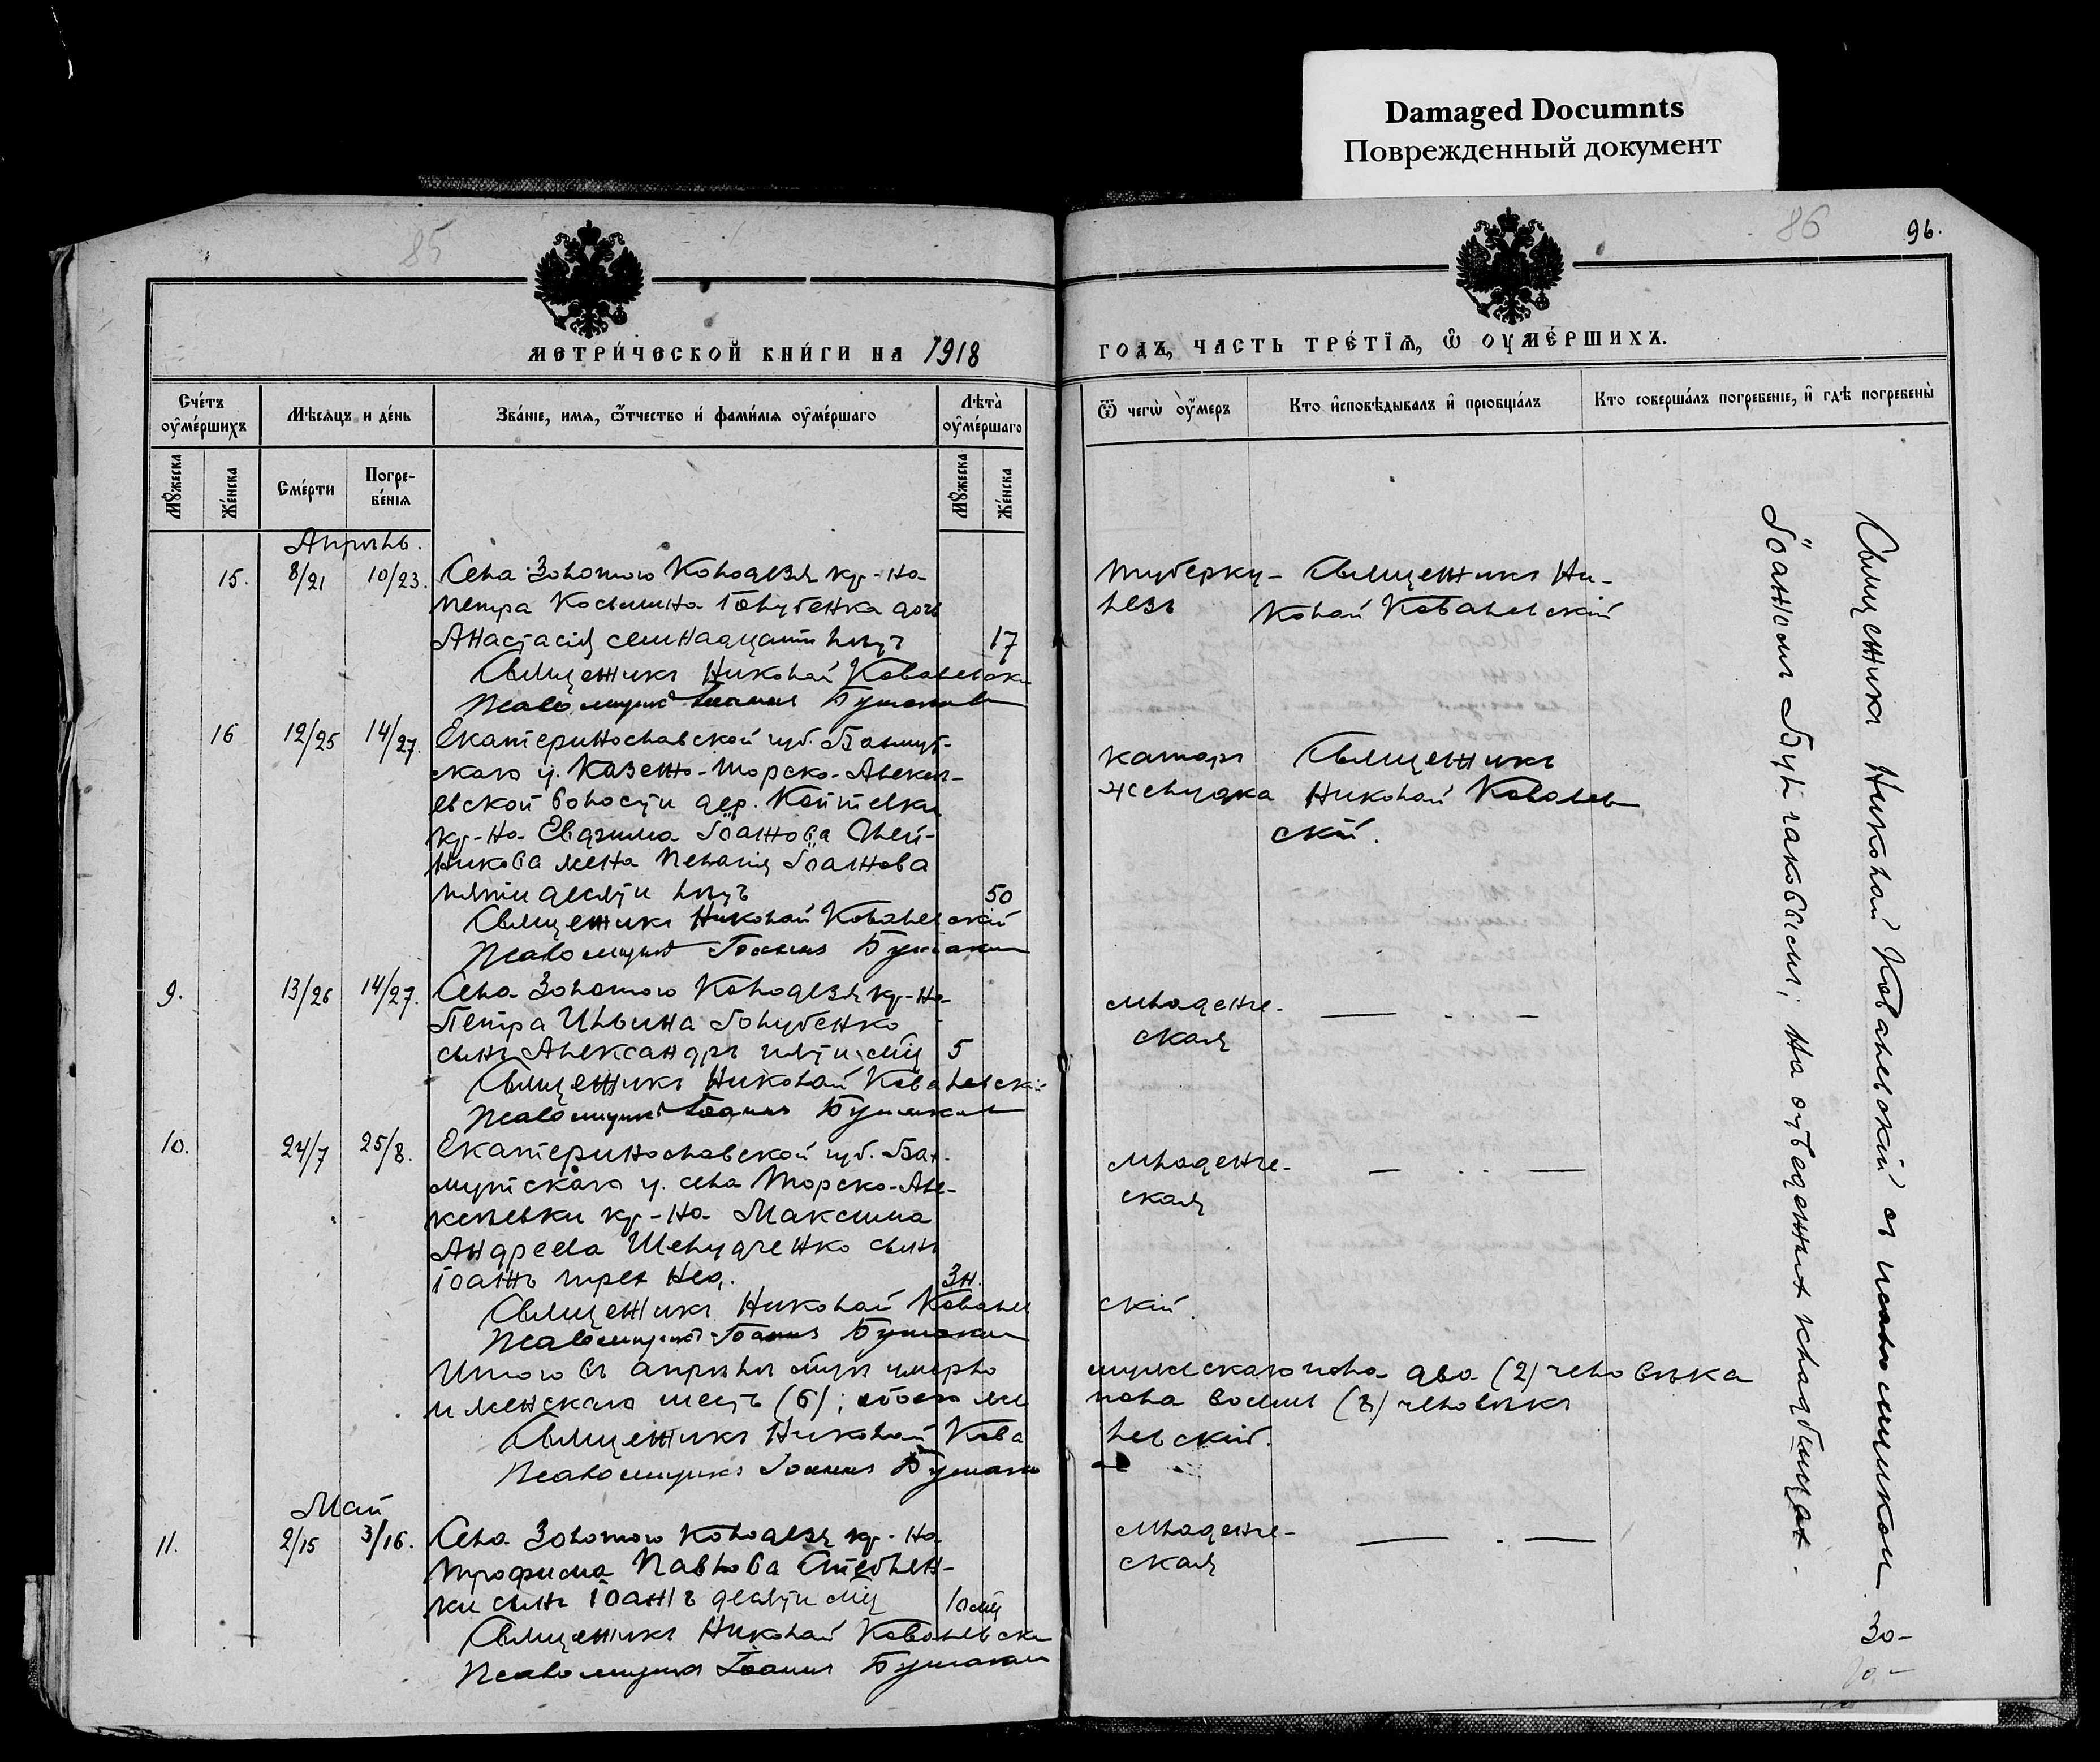 Damaged Documnts
Поврежденный документ
85
86
96.
МЕТРИ́ЧЕСКОЙ КНИ́ГИ НА 1918
ГОДЪ, ЧАСТЬ ТРЕ́ТІѦ, Ѽ ОУМЕ́РШИХЪ.
Сче́тъ оумершихъ
Мѣсяцъ и де́нь
Зва́ніе, имя, ѿтчество и фами́лія оуме́ршаго
Лѣта̀ оуме́ршаго
Мꙋжеска
Же́нска
Сме́рти
Погребе́нія
Мꙋжеска
Же́нска
Ѿ чегѡ̀ оу́меръ
Кто исповѣдывалъ и пріобща́лъ
Кто соверша́лъ погребеніе, и гдѣ погребены̀
Апрѣль.
15. 8/21 10/23. Села Золотого Колодезя кр-на
Петра Косьмина Голубенка дочь
Анастасія семнадцати лѣтъ 17
Священникъ Николай Ковалевскі
Псаломщикъ Іоаннъ
туберку-
лезъ
Священникъ Ни-
колай Ковалевскій
16 12/25 14/27. Екатеринославской губ. Бахмут-
скаго у. Казенно-Торско-Алексе-
евской волости дер.
кр-на Іоаннова Олей-
никова жена Пелагія Іоаннова
пятидесяти лѣтъ 50
Священникъ Николай Ковалевскій
Псаломщикъ Іоаннъ
катаръ
желудка
Священникъ
Николай Ковалев
скій.
9. 13/26 14/27. Села Золотого Колодезя кр-на
Петра Ильина Голубенко
сынъ Александръ пяти мѣц 5
Священникъ Николай Ковалевскі
Псаломщикъ Іоаннъ
младенче-
ская
10. 24/7 25/8. Екатеринославской губ. Бах-
мутскаго у. села Торско-Але-
ксеевки кр-на Максима
Андреева Шелудченко сынъ
Іоаннъ трех нед. 3 н.
Священникъ Николай Ковалев
скій.
Псаломщикъ Іоаннъ
младенче-
ская
Итого въ апрѣлѣ мѣцѣ умерло
мужескаго пола два (2) человѣка
и женскаго шесть (6); обоего же
пола восемь (8) человѣкъ
Священникъ Николай Кова
левскій.
Псаломщикъ Іоаннъ
Май
11. 2/15 3/16. Села Золотого Колодезя кр-на
Трофима Павлова Стеблен-
ки сынъ Іоаннъ десяти мѣц 10 мѣц
Священникъ Николай Ковалевски
Псаломщикъ Іоаннъ
младенче-
ская
Священникъ Николай Ковалевскій съ псаломщикомъ
Іоанномъ на отведенномъ кладбищѣ.
30-